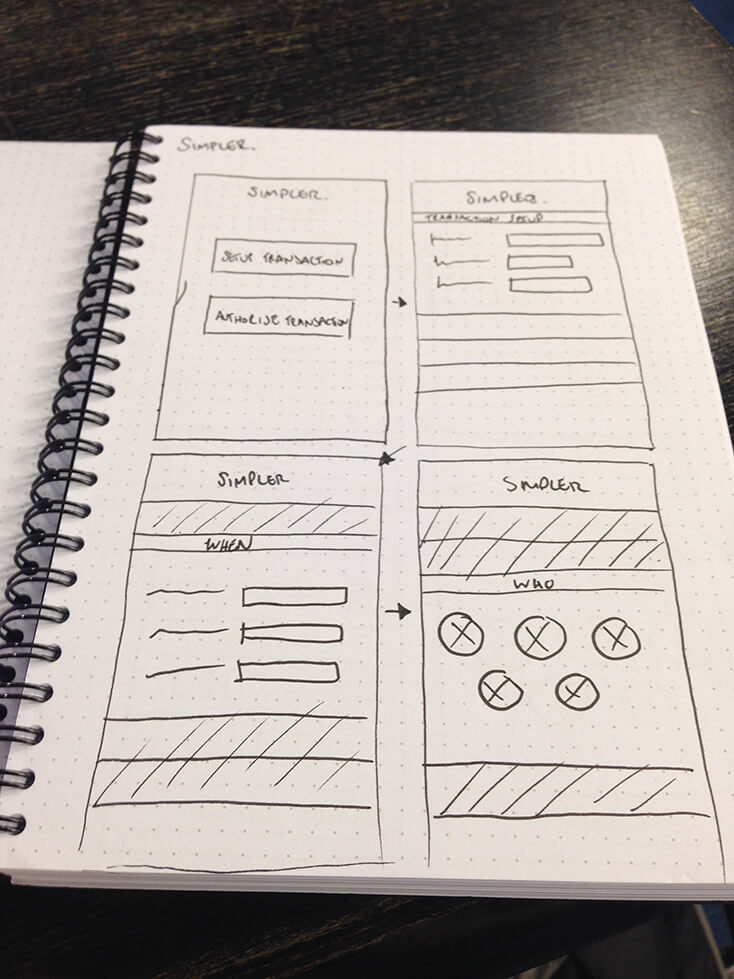 SIMPLER.
SIMPLER.
SETUP TRANSACTION
AUTHORISE TRANSACTION
SIMPLER.
TRANSACTION SETUP
SIMPLER
WHEN
SIMPLER
WHO